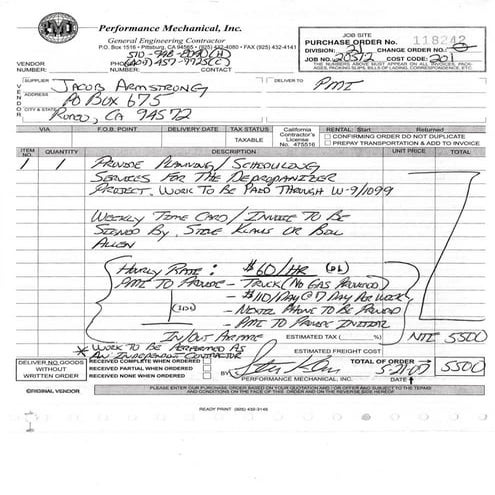 PMI
Performance Mechanical, Inc.
General Engineering Contractor
P.O. Box 1516 • Pittsburg, CA 94565 • (925) 432-4080 • FAX (925) 432-4141
JOB SITE
PURCHASE ORDER No. 118242
DIVISION: 21 CHANGE ORDER No.
JOB NO.: 20512 COST CODE: 201
THE NUMBERS ABOVE MUST APPEAR ON ALL INVOICES, PACKAGES, PACKING SLIPS, BILLS OF LADING, CORRESPONDENCE, ETC.
VENDOR NUMBER: PHONE NUMBER: CONTACT
VENDOR
SUPPLIER Jacob Armstrong
ADDRESS PO Box 675
CITY & STATE Rodeo, CA 94572
DELIVER TO PMI
VIA F.O.B. POINT DELIVERY DATE TAX STATUS TAXABLE
California Contractor's License No. 475516
RENTAL: Start Returned
CONFIRMING ORDER DO NOT DUPLICATE
PREPAY TRANSPORTATION & ADD TO INVOICE
ITEM NO. QUANTITY DESCRIPTION UNIT PRICE TOTAL
1 1 Provide Planning / Scheduling
Services For The Depropanizer
Project. Work To Be Paid Through W-9/1099
Weekly Time Card / Invoice To Be
Signed By, Steve Klaus or Bill
Allen
Hourly Rate: $60/HR
PMI To Provide - Truck (No Gas Provided)
- $110/Day @ 7 Day Per Week
- Nextel Phone To Be Provided
- PMI To Provide Initial
In/Out Airfare
ESTIMATED TAX ( %) NTE 5500
* Work To Be Performed As
An Independent Contractor
ESTIMATED FREIGHT COST
DELIVER NO GOODS WITHOUT WRITTEN ORDER
RECEIVED COMPLETE WHEN ORDERED
RECEIVED PARTIAL WHEN ORDERED
RECEIVED NONE WHEN ORDERED
BY
PERFORMANCE MECHANICAL, INC.
TOTAL OF ORDER 5500
5-21-07
DATE
ORIGINAL VENDOR
PLEASE ENTER OUR PURCHASE ORDER BASED ON YOUR QUOTATION AND / OR OFFER AND SUBJECT TO THE TERMS
AND CONDITIONS ON THE FACE OF THIS ORDER AND ON THE REVERSE SIDE HEREOF
READY PRINT (925) 432-3146